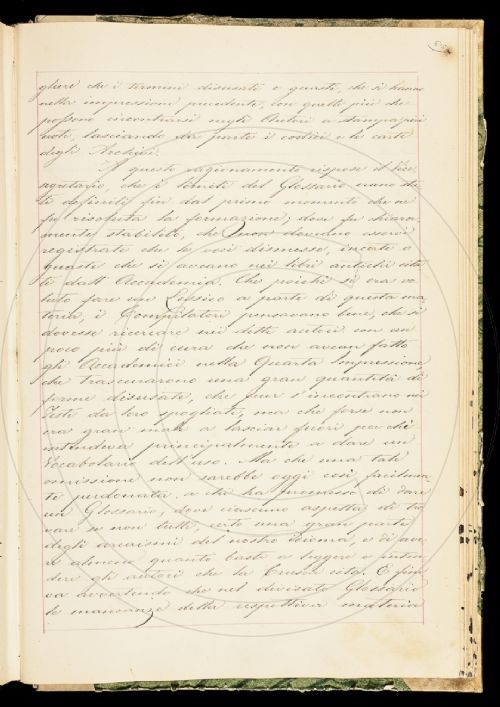 glieri che i termini disusati e guasti, che si hanno
nella impressione precedente, con quelli più che
possono incontrarsi negli Autori a stampa più
noti, lasciando da parte i codici e le carte
degli Archivi.
A questo ragionamento rispose il Vice
segretario, che i limiti del Glossario erano sta
ti definiti fin dal primo momento che ne
fu risoluta la formazione; dove fu chiara
mente stabilito, che non dovevano esservi
registrate che le voci dismesse, incerte o
guaste che si avevano nei libri antichi cita
ti dall'Accademia. Che poichè si era vo
luto fare un Lessico a parte di questa ma
teria, i Compilatori pensavano bene, che si
dovesse ricercare nei detti autori con un
poco più di cura che non avean fatto
gli Accademici nella Quarta Impressione,
che trascurarono una gran quantità di
forme disusate, che pur s'incontrano nei
Testi da loro spogliati, ma che forse non
era gran male a lasciar fuori per chi
intendeva principalmente a dare un
Vocabolario dell'uso. Ma che una tale
omissione non sarebbe oggi così facilmen
te perdonata a chi ha promesso di dare
un Glossario, dove ciascuno aspetta di tro
vare se non tutti, certo una gran parte
degli arcaismi del nostro Idioma, e di ave
re almeno quanto basta a leggere e inten
dere gli autori che la Crusca cita. E fini
va avvertendo che nel divisato Glossario
le mancanze della respettiva materia